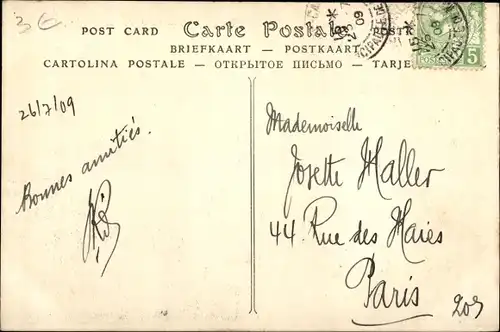 3€
POST CARD Carte Postale POSTK
BRIEFKAART — POSTKAART
CARTOLINA POSTALE — ОТКРЫТОЕ ПИСЬМО — TARJE
5
26/7/09
Bonnes amitiés.
Mademoiselle
Josette Haller
44 Rue des Haies
Paris
209